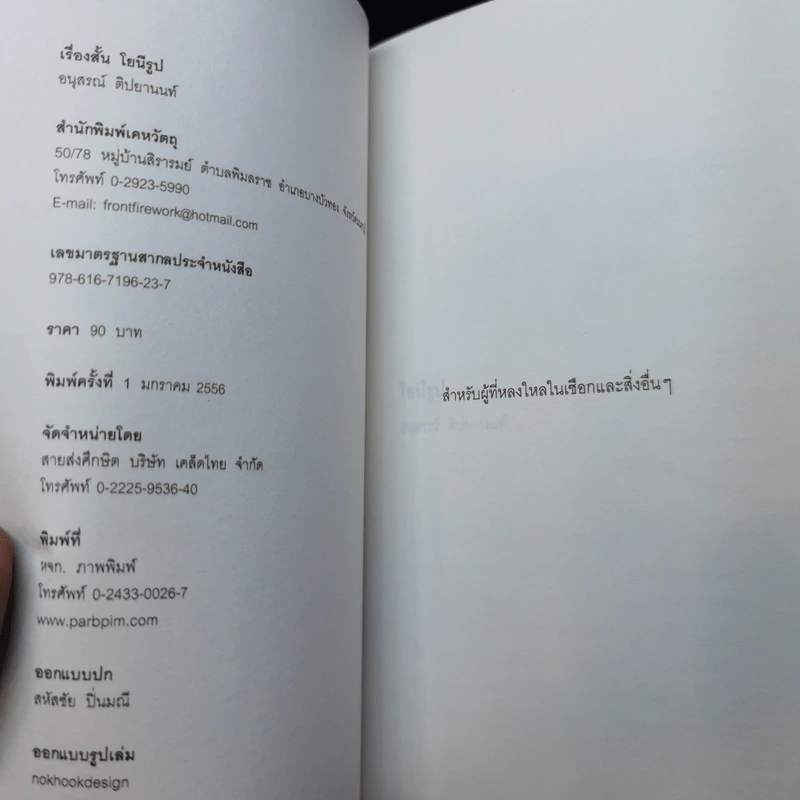 เรื่องสั้น โยนีรูป
อนุสรณ์ ติปยานนท์
สำนักพิมพ์เคหวัตถุ
50/78 หมู่บ้านสิรารมย์ ตำบลพิมลราช อำเภอบางบัวทอง
โทรศัพท์ 0-2923-5990
E-mail: frontfirework@hotmail.com
เลขมาตรฐานสากลประจำหนังสือ
978-616-7196-23-7
ราคา 90 บาท
พิมพ์ครั้งที่ 1 มกราคม 2556
จัดจำหน่ายโดย
สายส่งศึกษิต บริษัท เคล็ดไทย จำกัด
โทรศัพท์ 0-2225-9536-40
พิมพ์ที่
หจก. ภาพพิมพ์
โทรศัพท์ 0-2433-0026-7
www.parbpim.com
ออกแบบปก
สหัสชัย ปิ่นมณี
ออกแบบรูปเล่ม
nokhookdesign
สำหรับผู้ที่หลงใหลในเชือกและสิ่งอื่นๆ